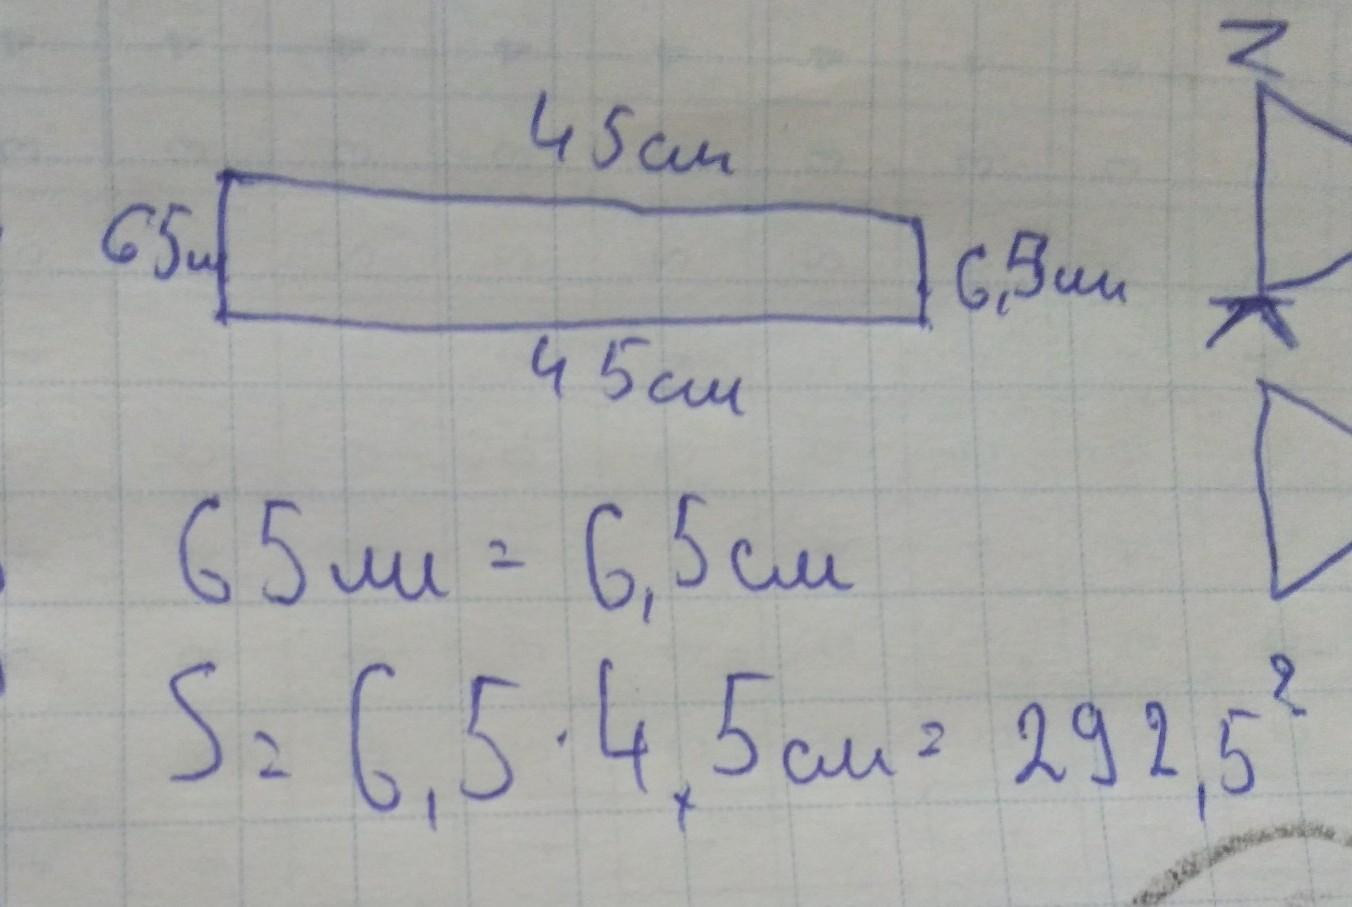 45см
65м
6,5см
45см
65мм = 6,5см
S = 6,5 · 4,5см = 292,5²